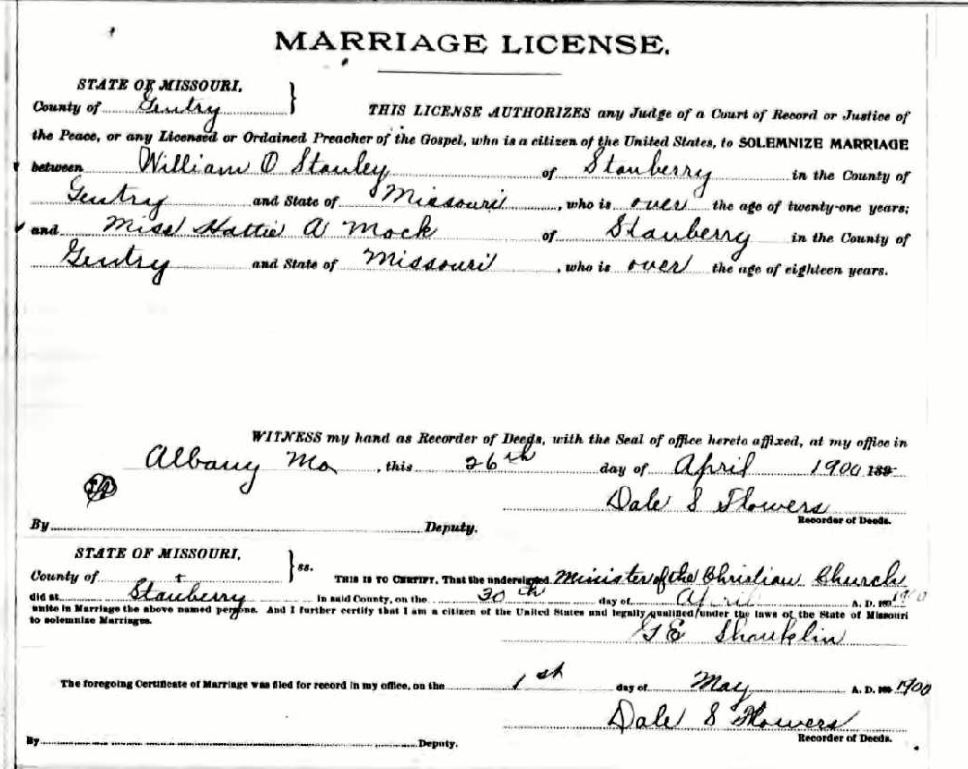 MARRIAGE LICENSE.
STATE OF MISSOURI,
County of Gentry } THIS LICENSE AUTHORIZES any Judge of a Court of Record or Justice of
the Peace, or any Licensed or Ordained Preacher of the Gospel, who is a citizen of the United States, to SOLEMNIZE MARRIAGE
between William O Stanley of Stanberry in the County of
Gentry and State of Missouri, who is over the age of twenty-one years;
and Miss Hattie A Mock of Stanberry in the County of
Gentry and State of Missouri, who is over the age of eighteen years.
WITNESS my hand as Recorder of Deeds, with the Seal of office hereto affixed, at my office in
Albany Mo, this 26th day of April 1900 189
Dale S Flowers
By Deputy. Recorder of Deeds.
STATE OF MISSOURI,
County of } ss. THIS IS TO CERTIFY, That the undersigned Minister of the Christian Church
did at Stanberry in said County, on the 30th day of April A. D. 1900
unite in Marriage the above named persons. And I further certify that I am a citizen of the United States and legally qualified under the laws of the State of Missouri
to solemnize Marriages.
G E Shanklin
The foregoing Certificate of Marriage was filed for record in my office, on the 1st day of May A. D. 1900
Dale S Flowers
By Deputy. Recorder of Deeds.